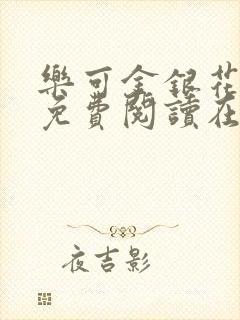 樂可金銀花
免費閱讀在
夜吉影